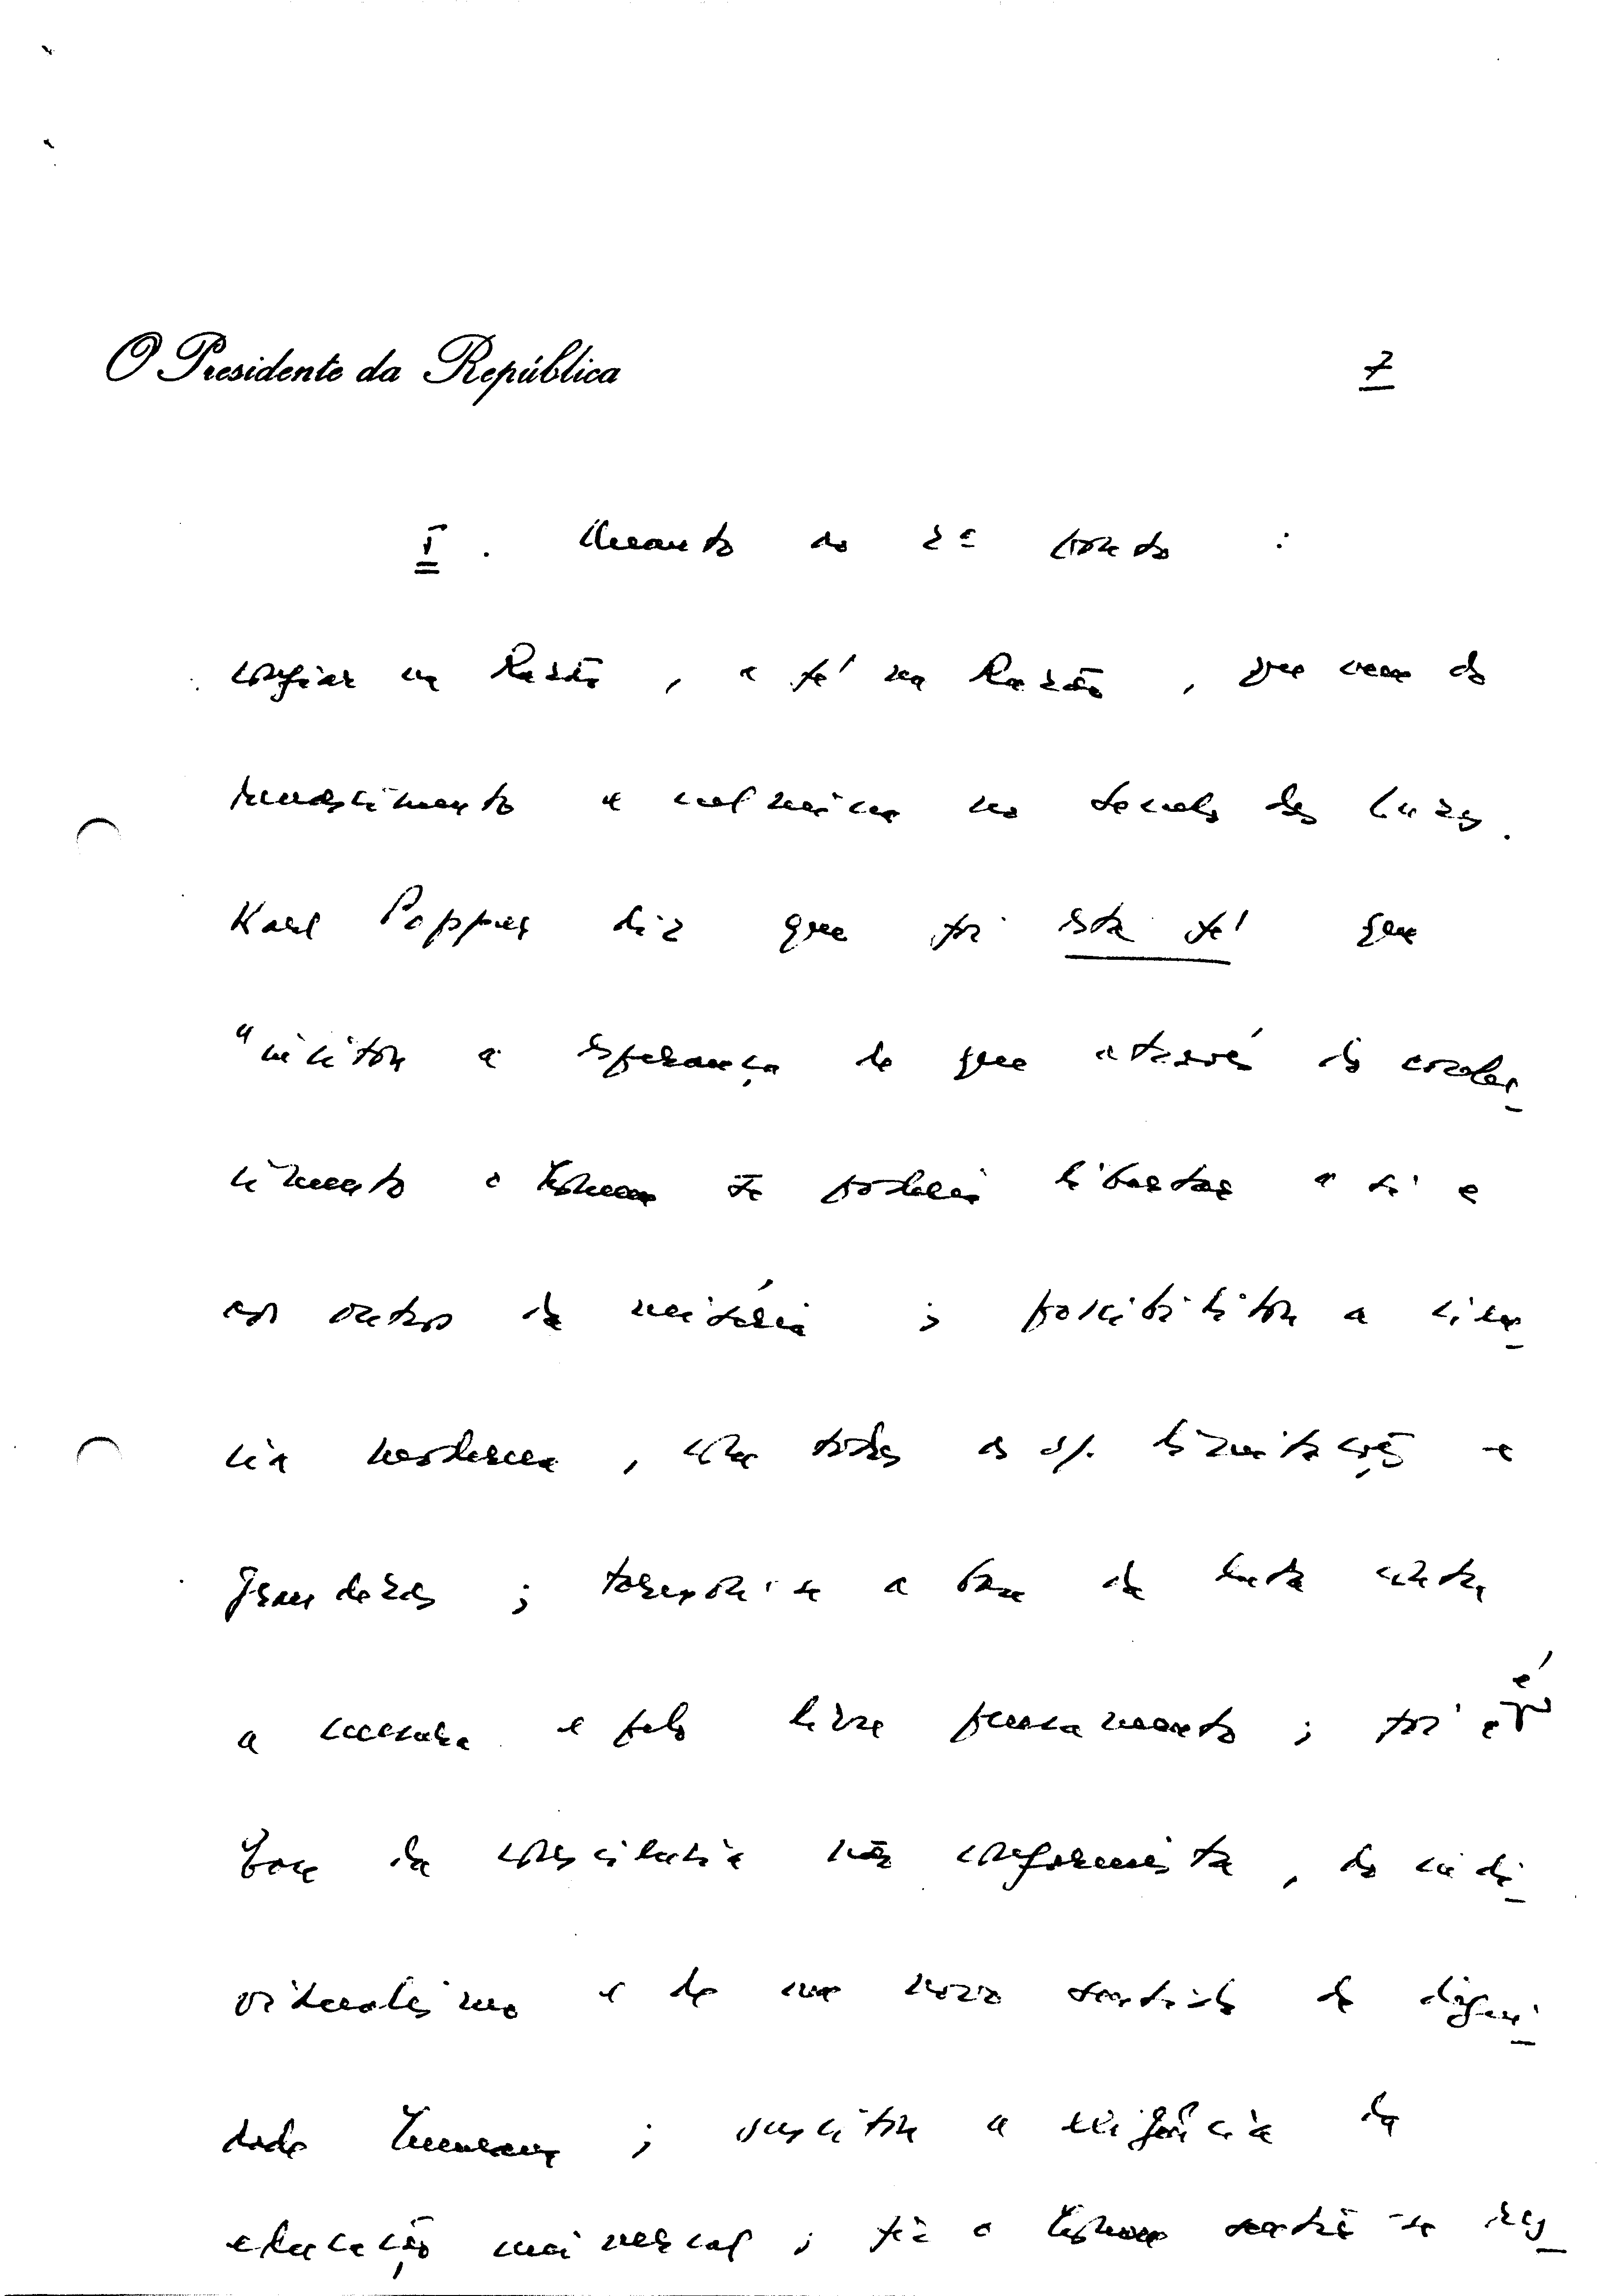 O Presidente da República
7
I. Quanto ao 2º ponto :
confiar na Razão, a fé na Razão, que vem do
renascimento e culmina no seculo das luzes.
Karl Popper diz que foi esta fé que
"incitou a esperança de que através do conhec_
imento o homem se poderia libertar a si e
aos outros da miséria ; possibilitou a ciên_
cia moderna, com todas as s/. limitações e
grandezas ; tornou-se a base da luta contra
a censura e pelo livre pensamento ; foi é
base da consciência não conformista, do indi_
vidualismo e de um novo sentido de digni_
dade humana ; suscitou a exigência da
educação universal ; fez o homem sentir-se res_